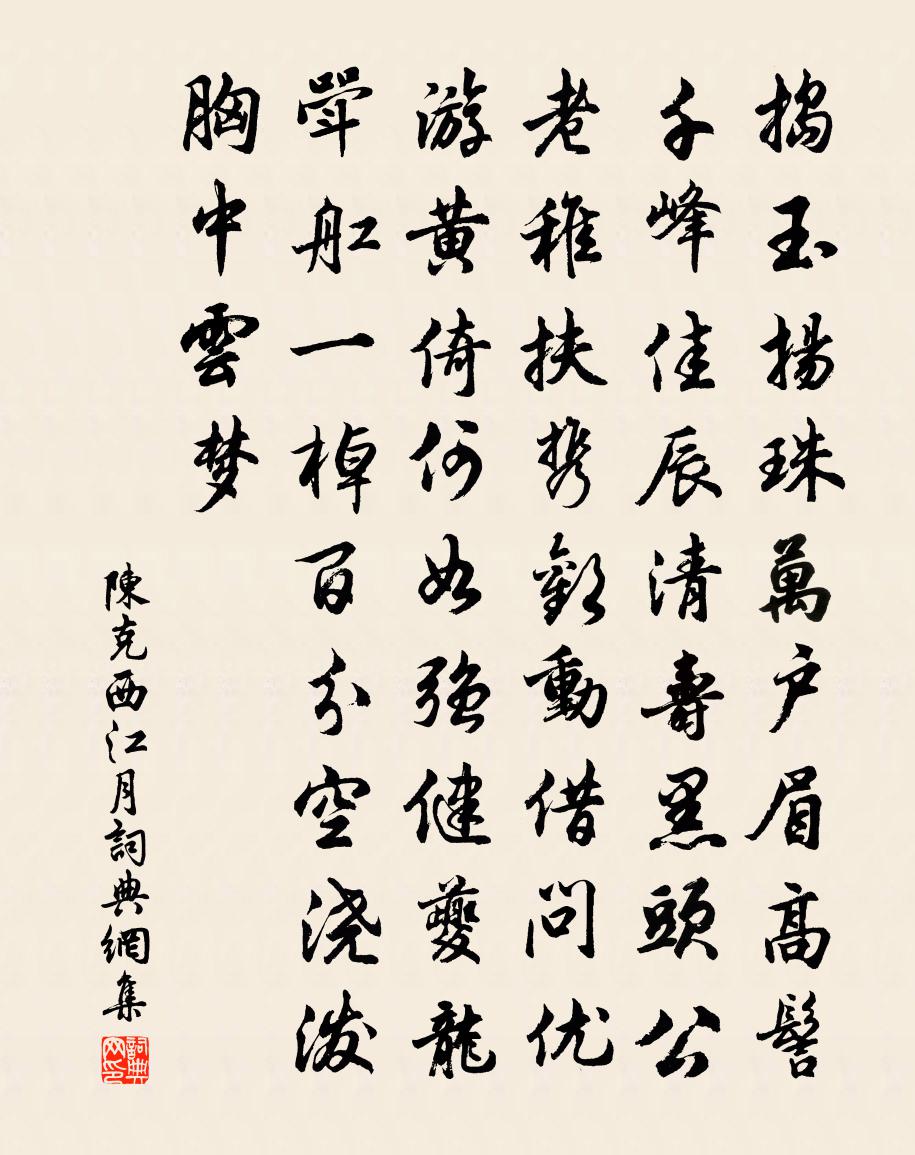 搗玉揚珠萬户眉高髻
千峰佳辰清壽黑頭公
老稚扶携歡動借問优
游黄倚何如強健夔龍
斝舡一棹百分空浇泼
胸中雲梦
陳克西江月詞典網集
詞典网印